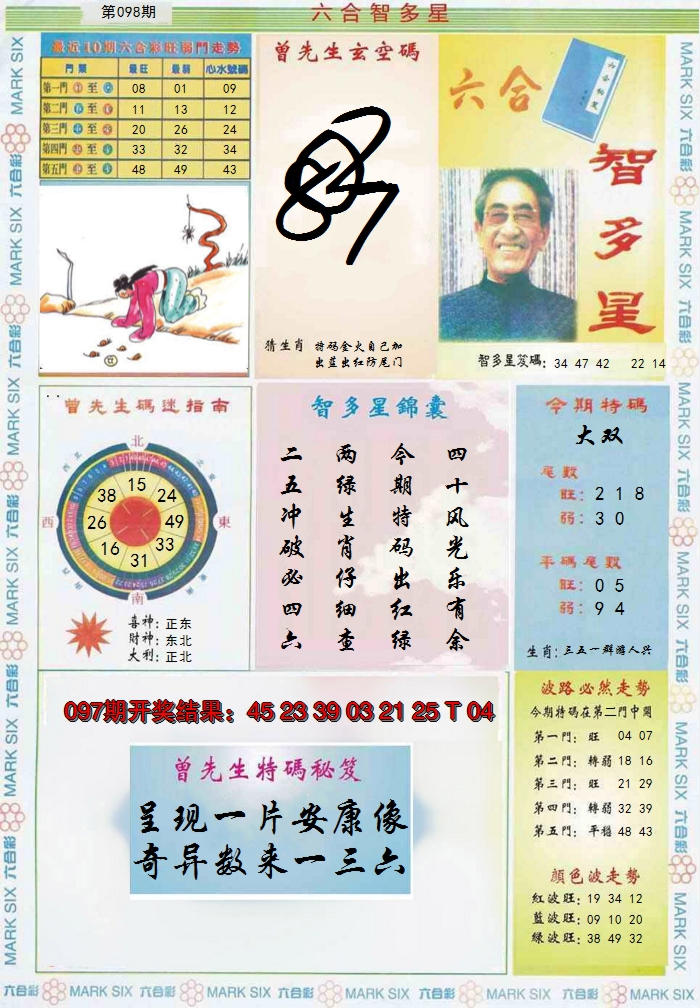 第098期
六合智多星
最近10期六合彩旺弱門走勢
門類 最旺 最弱 心水號碼
第一門 至 08 01 09
第二門 至 11 13 12
第三門 至 20 26 24
第四門 至 33 32 34
第五門 至 48 49 43
曾先生玄空碼
猜生肖 特码金火自己加
出蓝出红防尾门
六合
智多星
智多星笈碼: 34 47 42 22 14
曾先生碼迷指南
北
西
東
南
15
24
49
33
31
16
26
38
喜神: 正东
财神: 东北
大利: 正北
智多星錦囊
四十风光乐有余
今期特码出红绿
两绿生肖仔细查
二五冲破必四六
今期特碼
大双
尾數
旺: 2 1 8
弱: 3 0
平碼尾數
旺: 0 5
弱: 9 4
生肖: 三五一群游人兴
097期开奖结果: 45 23 39 03 21 25 T 04
曾先生特碼秘笈
呈现一片安康像
奇异数来一三六
波路必然走勢
今期特碼在第二門中開
第一門: 旺 04 07
第二門: 轉弱 18 16
第三門: 旺 21 29
第四門: 轉弱 32 39
第五門: 平穩 48 43
顔色波走勢
紅波旺: 19 34 12
藍波旺: 09 10 20
綠波旺: 38 49 32
MARK SIX 六合彩